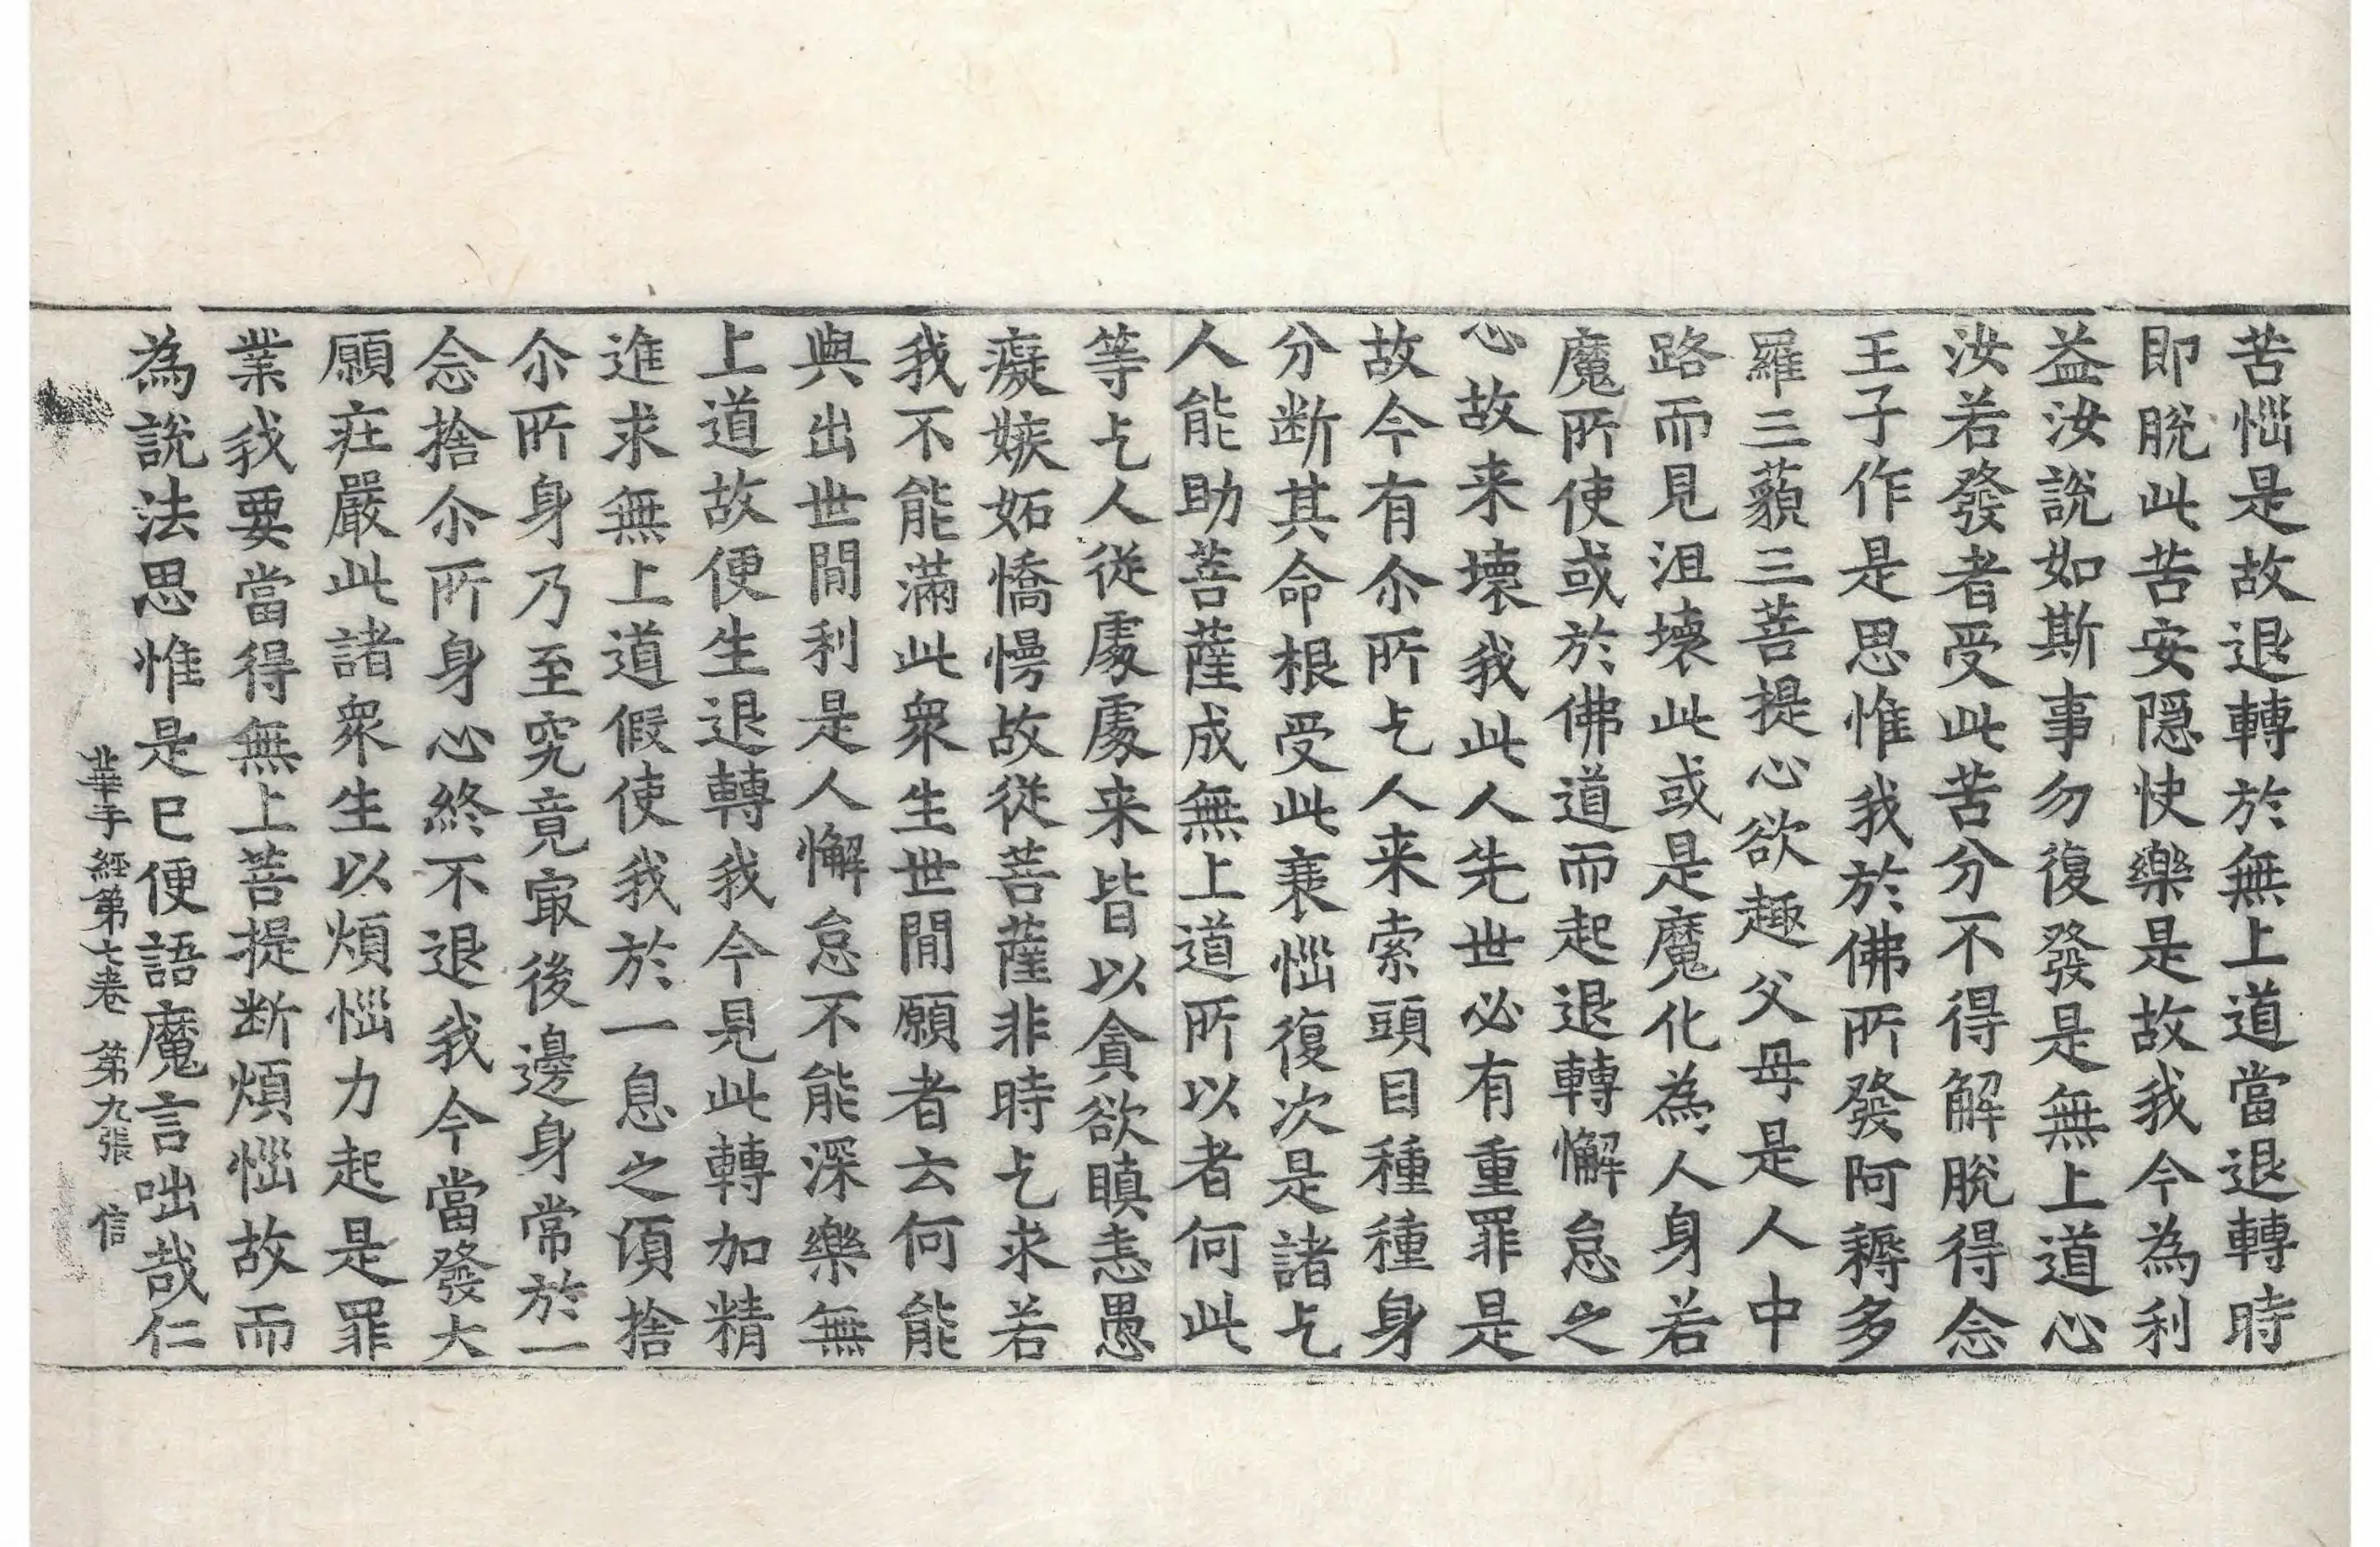 苦惱是故退轉於無上道當退轉時
即脫此苦安隱快樂是故我今為利
益汝說如斯事勿復發是無上道心
汝若發者受此苦分不得解脫得念
王子作是思惟我於佛所發阿耨多
羅三藐三菩提心欲趣父母是人中
路而見沮壞此或是魔化為人身若
魔所使或於佛道而起退轉懈怠之
心故来壞我此人先世必有重罪是
故今有尒所乞人来索頭目種種身
分断其命根受此衰惱復次是諸乞
人能助菩薩成無上道所以者何此
等乞人從處處来皆以貪欲瞋恚愚
癡嫉妬憍慢故從菩薩非時乞求若
我不能滿此眾生世間願者云何能
與出世間利是人懈怠不能深樂無
上道故便生退轉我今見此轉加精
進求無上道假使我於一息之須捨
尒所身乃至究竟㝡後邊身常於一
念捨尒所身心終不退我今當發大
願莊嚴此諸眾生以煩惱力起是罪
業我要當得無上菩提断煩惱故而
為說法思惟是已便語魔言咄哉仁
華手經第七卷 第九張 信